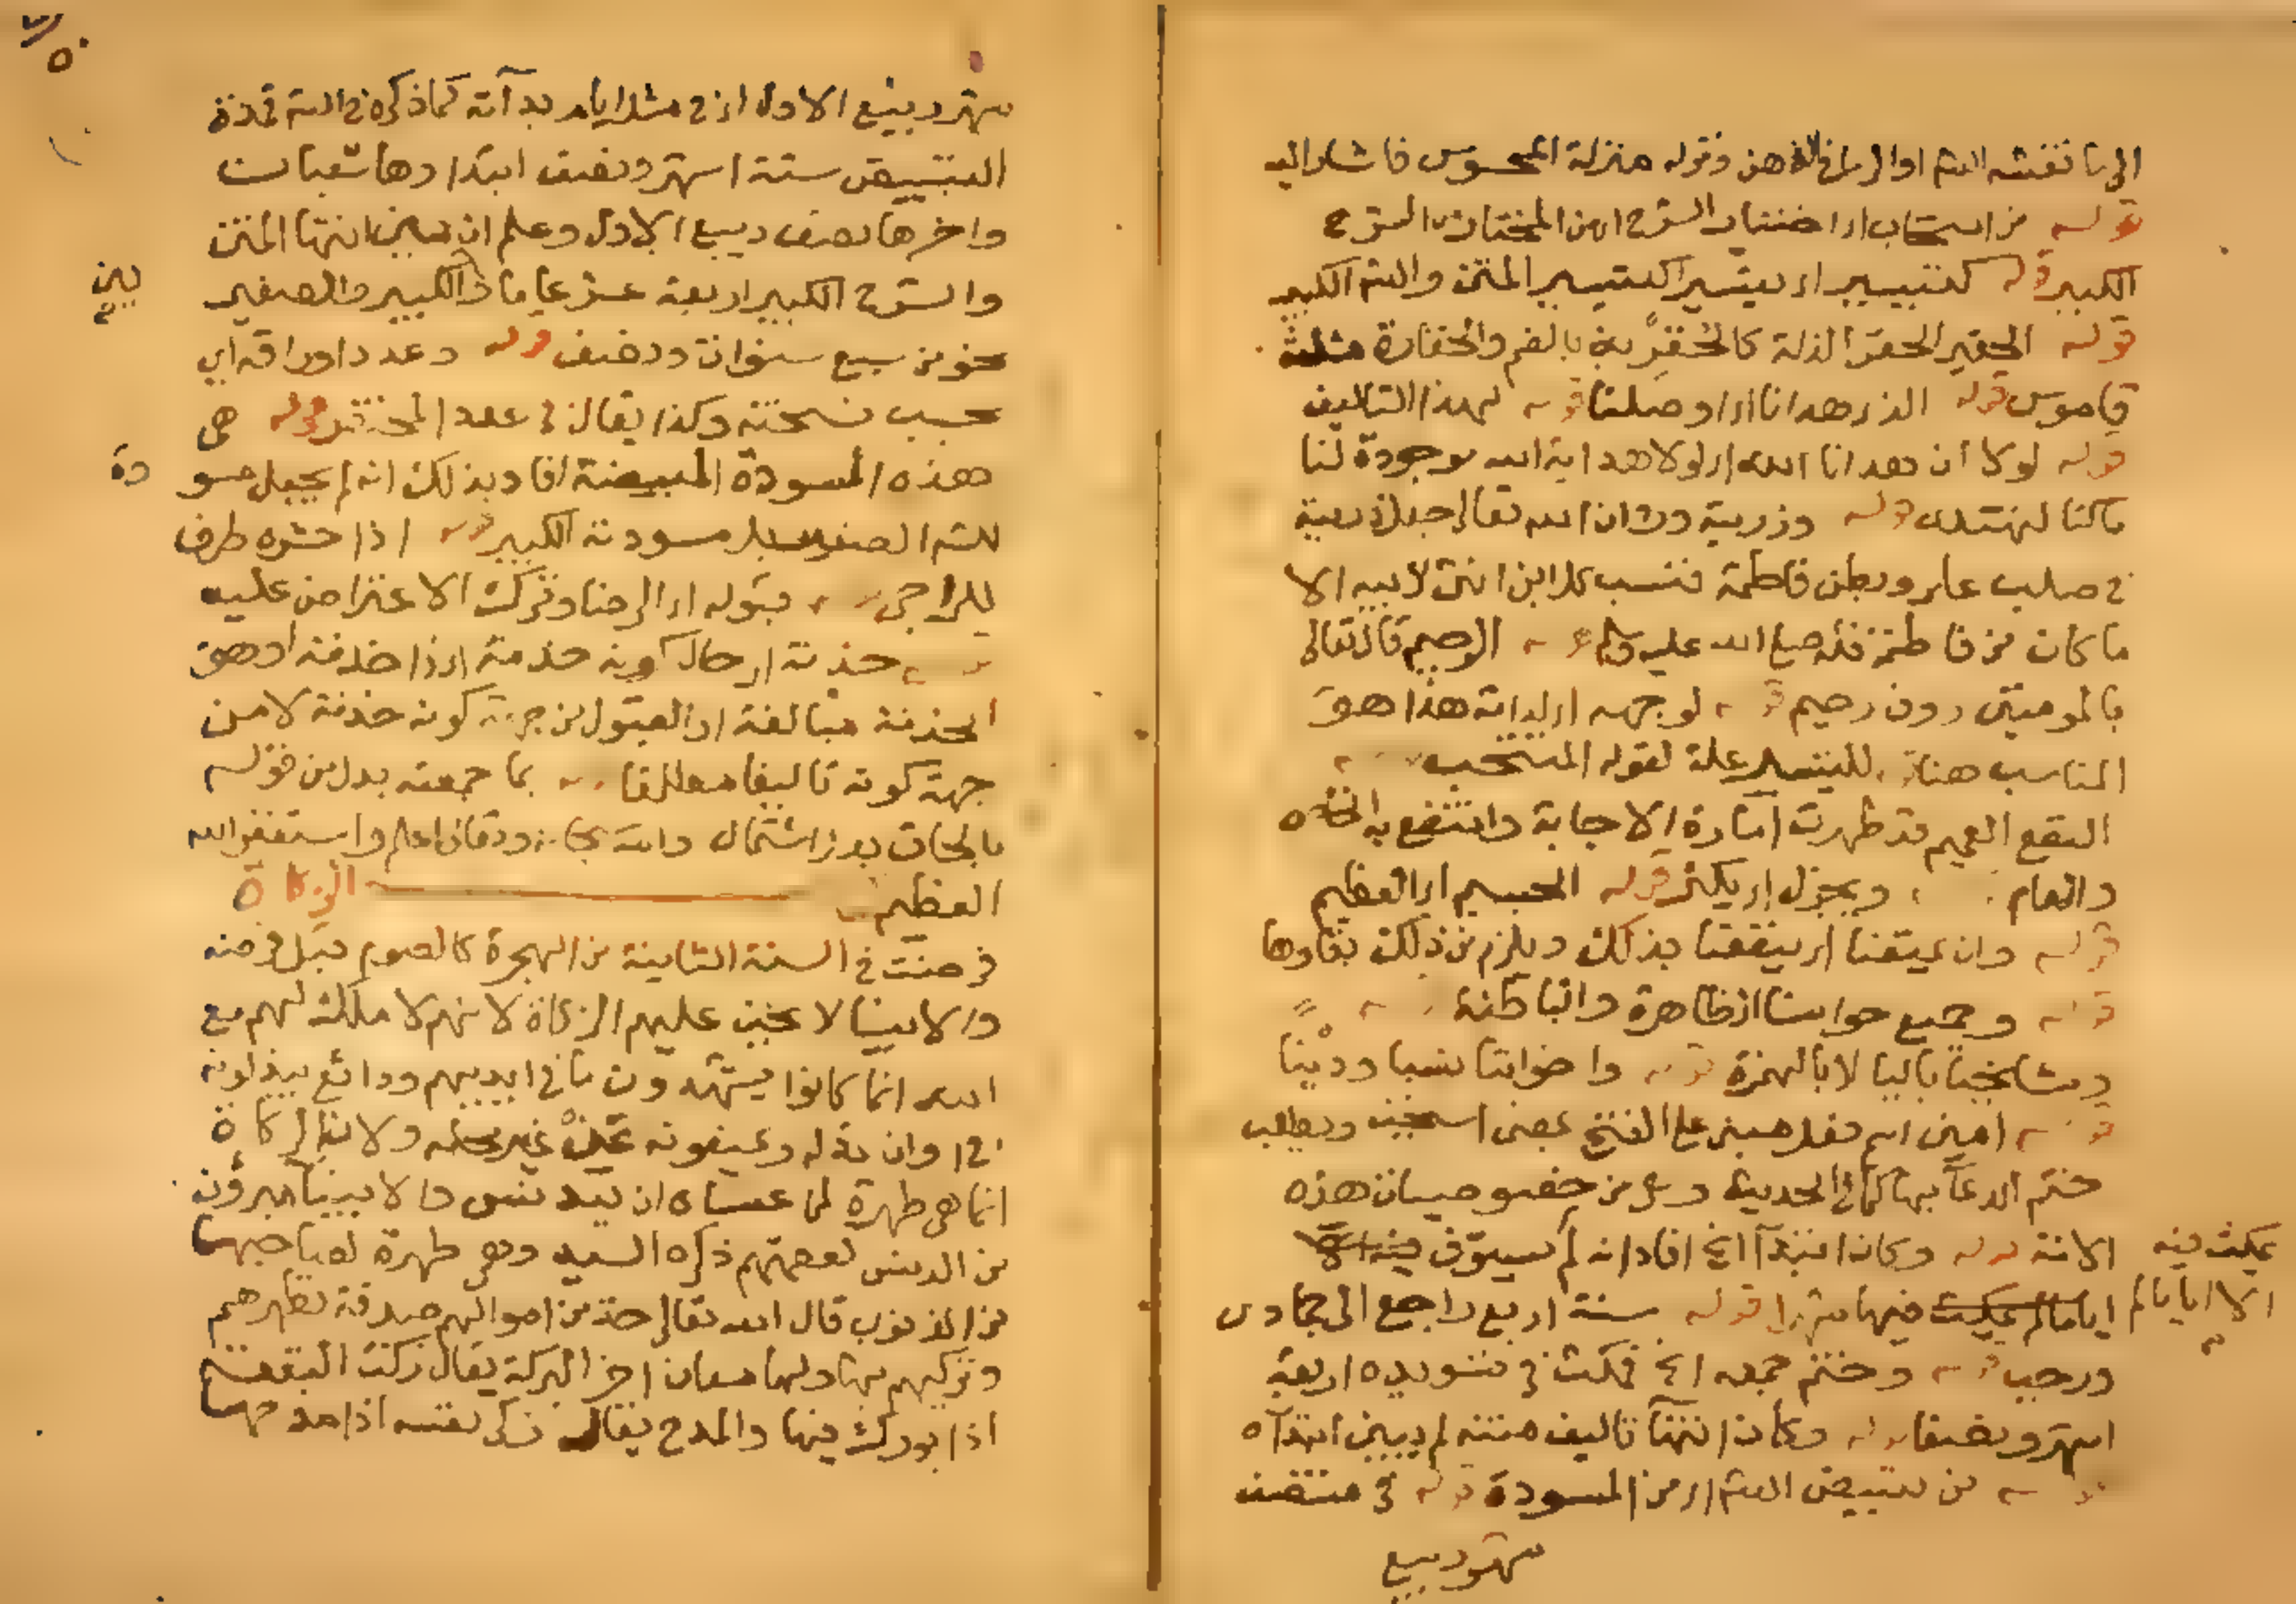 الى ما نفسه الشم او الى ما في الذهن ونزله منزلة المحسوس فاشار اليه
قوله من استحباب اى اختيار الشرح اى من المختار الشرح
الكبير قوله كتيسير اى تيسير كتيسير المتن والشم الكبير
قوله الحقير الحقر الذلة كالحقرية بالضم والحقارة مثلثة
قاموس قوله الذى هدانا اى اوصلنا قوله لهذا التاليف
قوله لولا ان هدانا الله اى لولا هداية الله موجودة لنا
ما كنا لنهتدى قوله وذريته ورد ان الله تعالى جعل ذريته
في صلب على وبطن فاطمة فنسب كل ابن انثى لابيه الا
ما كان من فاطمة فله صلى الله عليه وسلم قوله الرحيم قال تعالى
بالمومنين روف رحيم قوله لوجهه اى لذاته هذا هو
المناسب هنا للتيسير علة لقوله المستحب
النفع العميم قد ظهرت امارة الاجابة وانتفع به الخاص
والعام ويجزل اى يكثر قوله الجسيم اى العظيم
قوله وان يمتعنا اى ينفعنا بذلك ويلزم من ذلك بقاوها
قوله وجميع حواسنا الظاهرة والباطنة
ومشايخنا بالياء لا بالهمزة قوله واخواننا نسبا ودينا
قوله امين اسم فعل مبنى على الفتح بمعنى استجب ويطلب
ختم الدعآ بها كما في الحديث وهى من خصوصيات هذه
الامة قوله وكان ابتدآ الخ افاد انه لم يسوق فيه الا
يمكث فيه
اياما لم يمكث فيها شهرا قوله سنة اربع راجع الى جمادى
الا اياما لم
ورجب قوله وختم جمعه الخ فمكث في تسويده اربعة
اشهر ونصفا قوله وكان انتها تاليف متنه لم يبين ابتدآه
قوله من تبييض الشم اى من المسودة قوله في منتصف
شهر ربيع
شهر ربيع الاول اى في مثل ايام بدآته كما ذكره في الشم فمدة
التبييض ستة اشهر ونصف ابتداوها شعبان
واخرها نصف ربيع الاول وعلم ان بين انتها المتن
والشرح الكبير اربعة عشر عاما والكبير والصغير
بين
نحو من سبع سنوات ونصف قوله وعدد اوراقه اى
بحسب نسخته وكذا يقال في عدد المختصر قوله هى
هذه المسودة المبيضة افاد بذلك انه لم يجعل مسو
دة
للشم الصغير بل مسودته الكبير قوله اذا حشوه ظرف
للراجى قوله قبوله اى الرضا وترك الاعتراض عليه
قوله خدمة اى حال كونه خدمة اى ذا خدمة او هو
الخدمة مبالغة او القبول من جهة كونه خدمة لا من
جهة كونه تاليفا مطلقا قوله بما جمعته بدل من قوله
بالحاق بدل اشتمال والله سبحانه وتعالى اعلم واستغفر الله
العظيم الزكاة
فرضت في السنة الثانية من الهجرة كالصوم قبل فرضه
والانبيا لا تجب عليهم الزكاة لانهم لا ملك لهم مع
الله انما كانوا يشهدون ما في ايديهم ودائع يبذلونه
في اوان بذله ويمنعونه عن غير محله ولان الزكاة
انما هى طهرة لمن عساه ان يتدنس والانبيا مبرؤن
من الدنس لعصمتهم ذكره السيد وهى طهرة لصاحبها
من الذنوب قال الله تعالى خذ من اموالهم صدقة تطهرهم
وتزكيهم بها ولها معان اخر البركة يقال زكت البقعة
اذا بورك فيها والمدح يقال زكى نفسه اذا مدحها